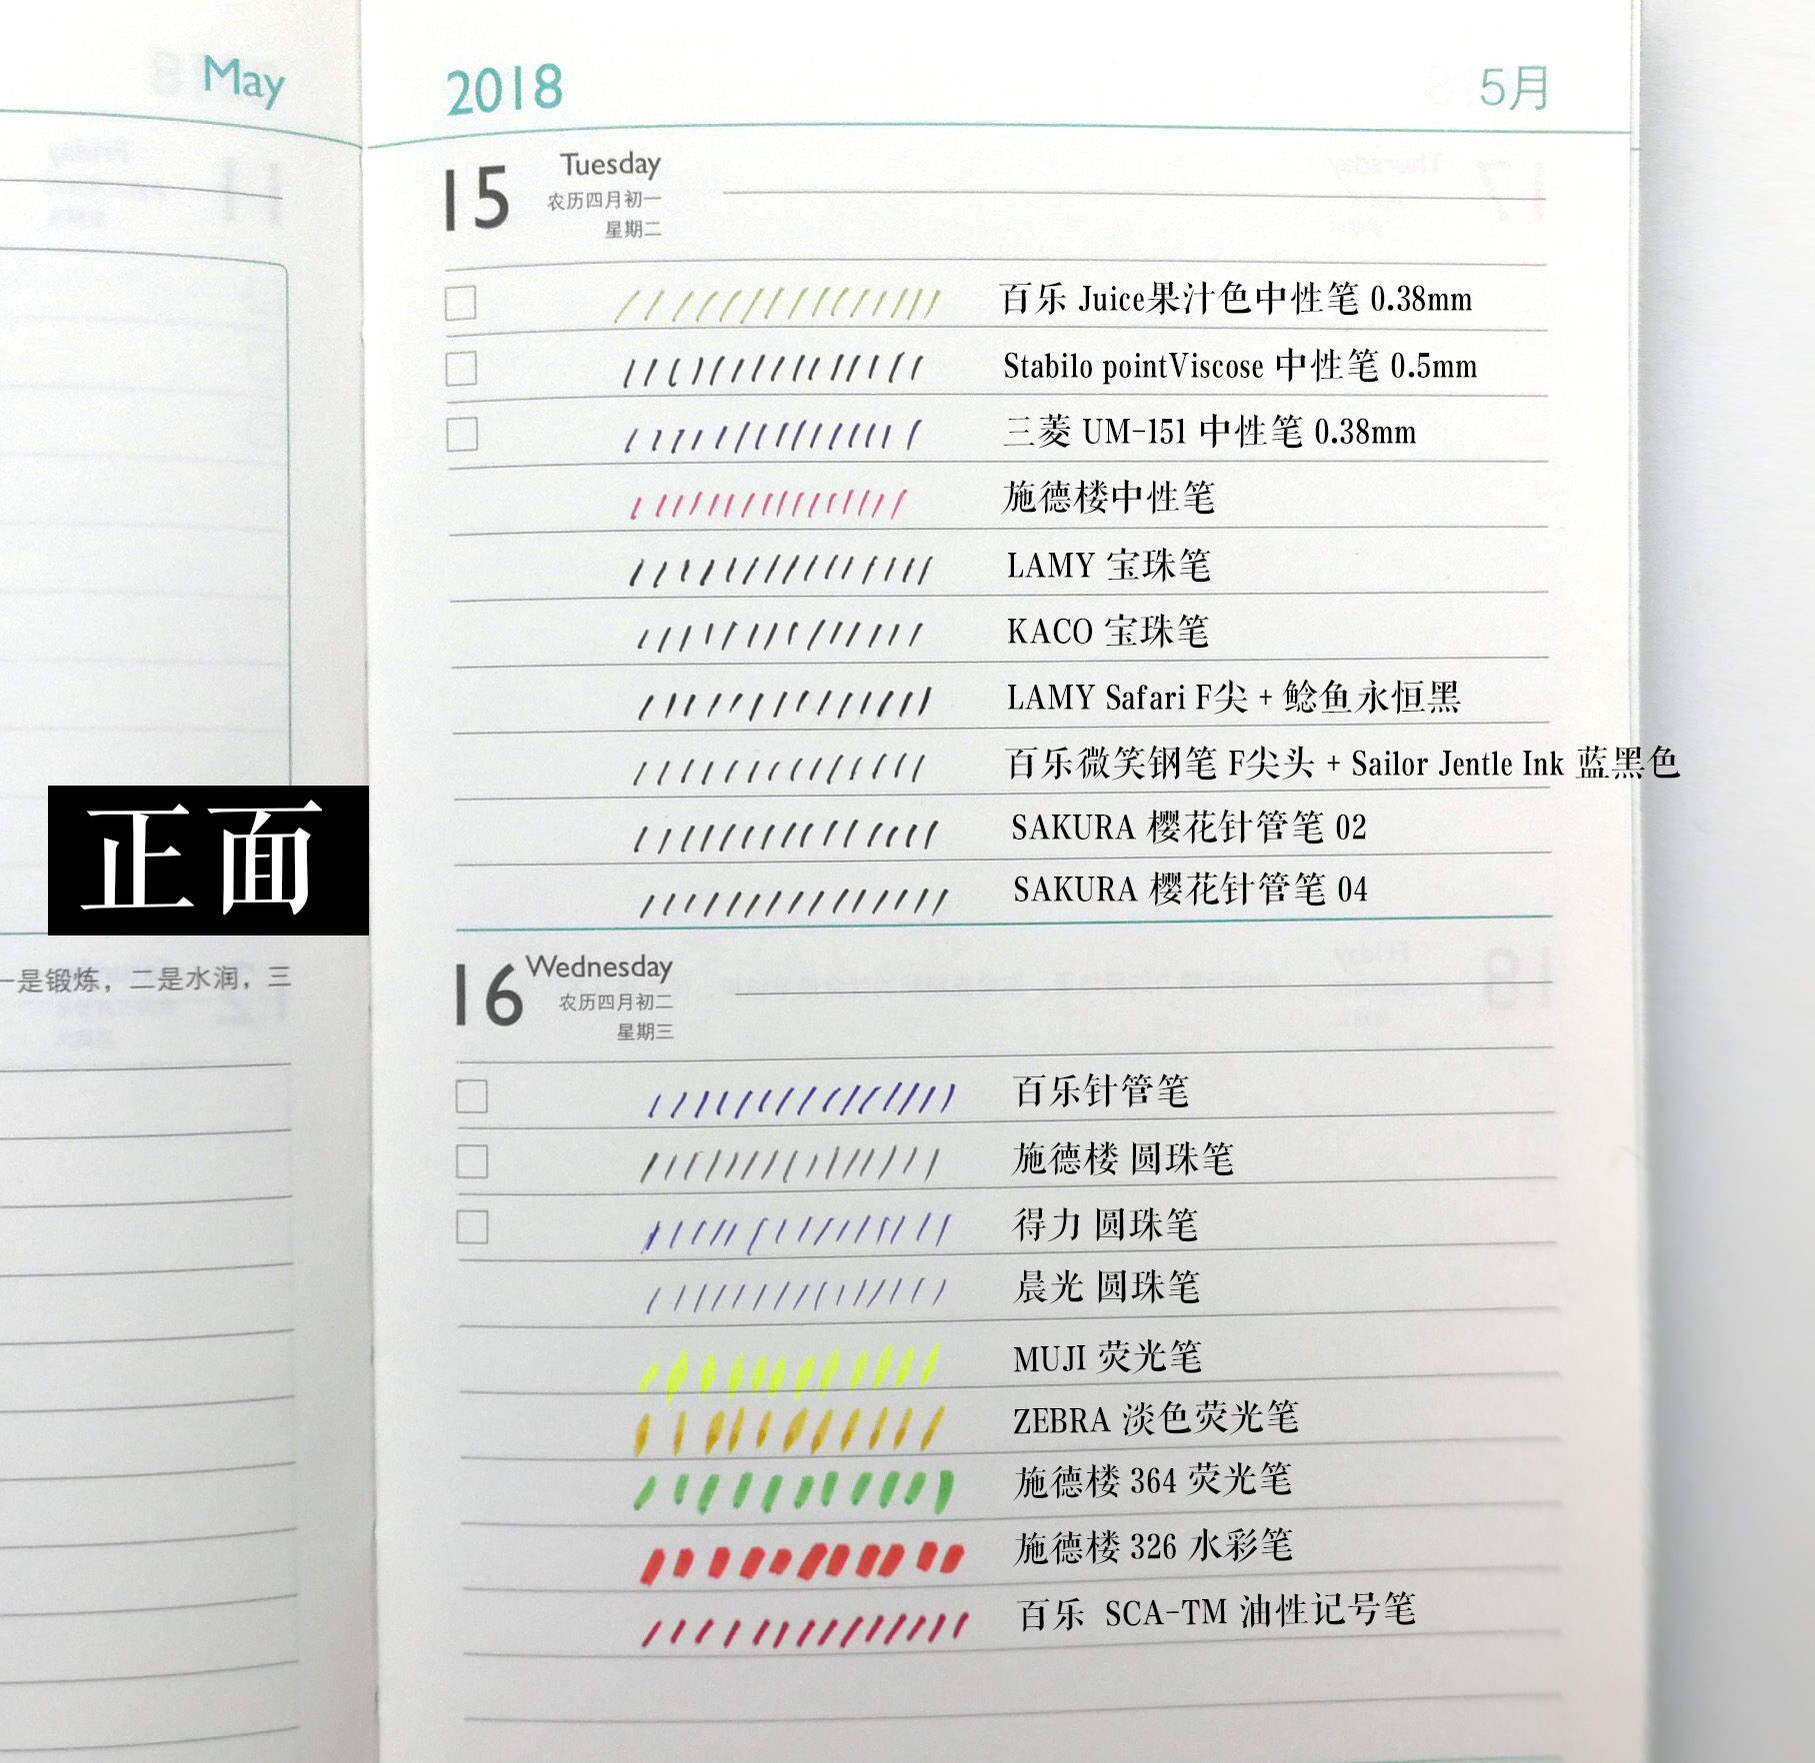 May
2018
5月
15
Tuesday
农历四月初一
星期二
百乐 Juice果汁色中性笔 0.38mm
Stabilo pointViscose 中性笔 0.5mm
三菱 UM-151 中性笔 0.38mm
施德楼中性笔
LAMY 宝珠笔
KACO 宝珠笔
LAMY Safari F尖 + 鲶鱼永恒黑
百乐微笑钢笔 F尖头 + Sailor Jentle Ink 蓝黑色
SAKURA 樱花针管笔 02
SAKURA 樱花针管笔 04
正面
一是锻炼，二是水润，三
16
Wednesday
农历四月初二
星期三
百乐针管笔
施德楼 圆珠笔
得力 圆珠笔
晨光 圆珠笔
MUJI 荧光笔
ZEBRA 淡色荧光笔
施德楼 364 荧光笔
施德楼 326 水彩笔
百乐 SCA-TM 油性记号笔